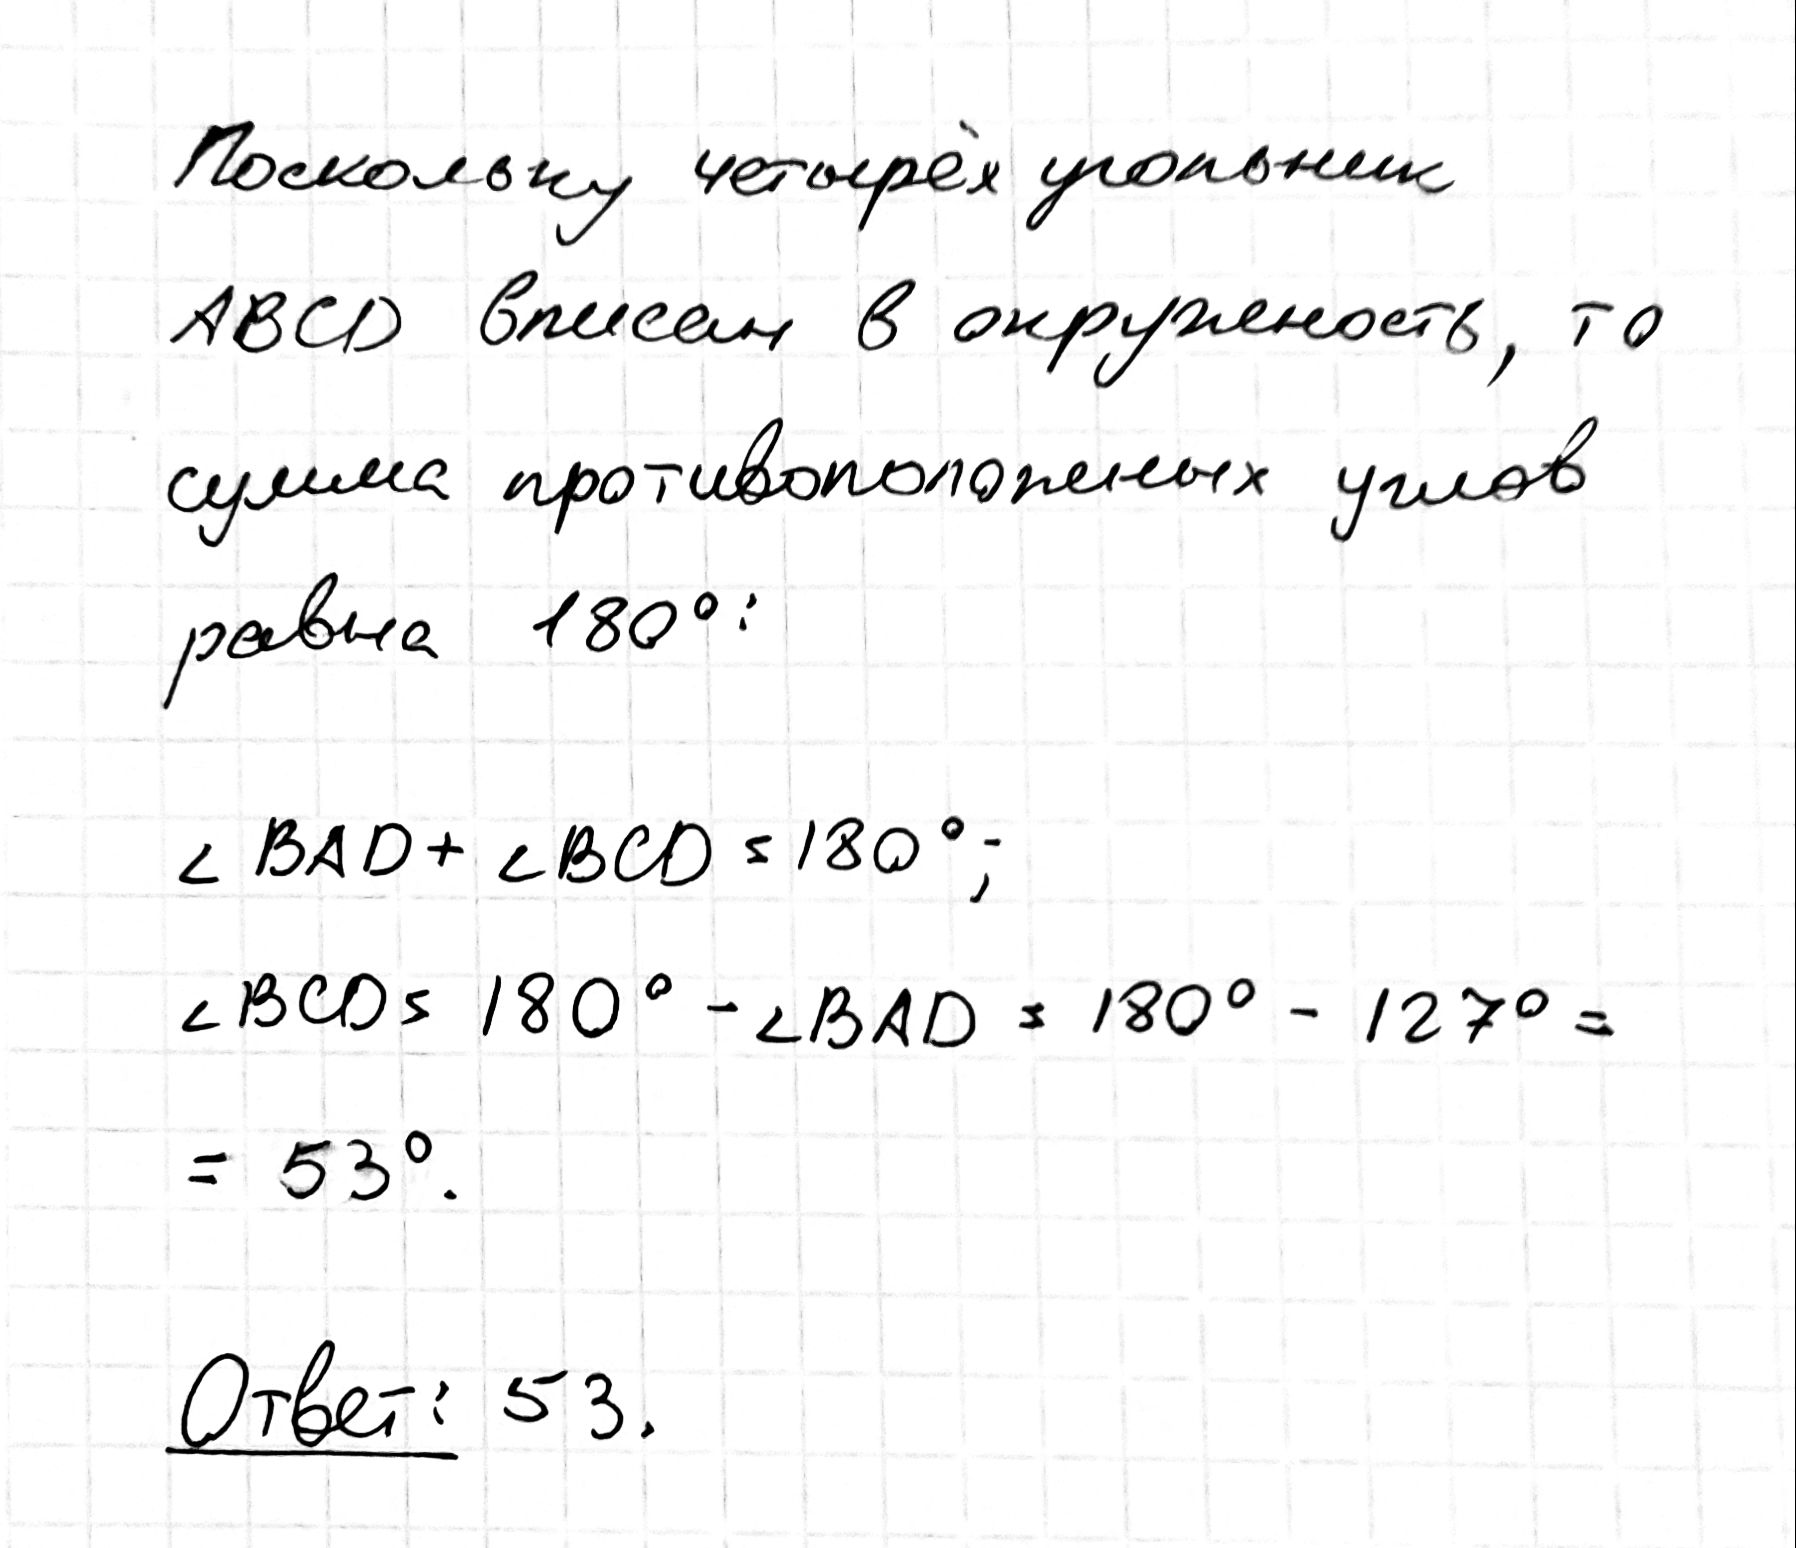 Поскольку четырёхугольник
ABCD вписан в окружность, то
сумма противоположных углов
равна 180°:
∠BAD + ∠BCD = 180°;
∠BCD = 180° - ∠BAD = 180° - 127° =
= 53°.
Ответ: 53.